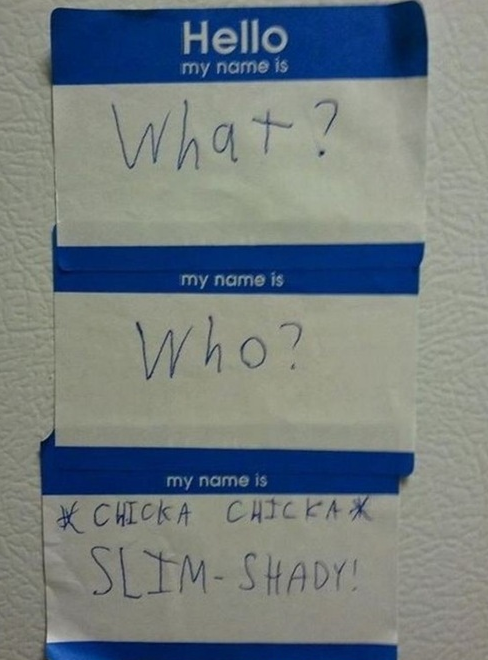 Hello
my name is
What?
my name is
Who?
my name is
* CHICKA CHICKA *
SLIM-SHADY!